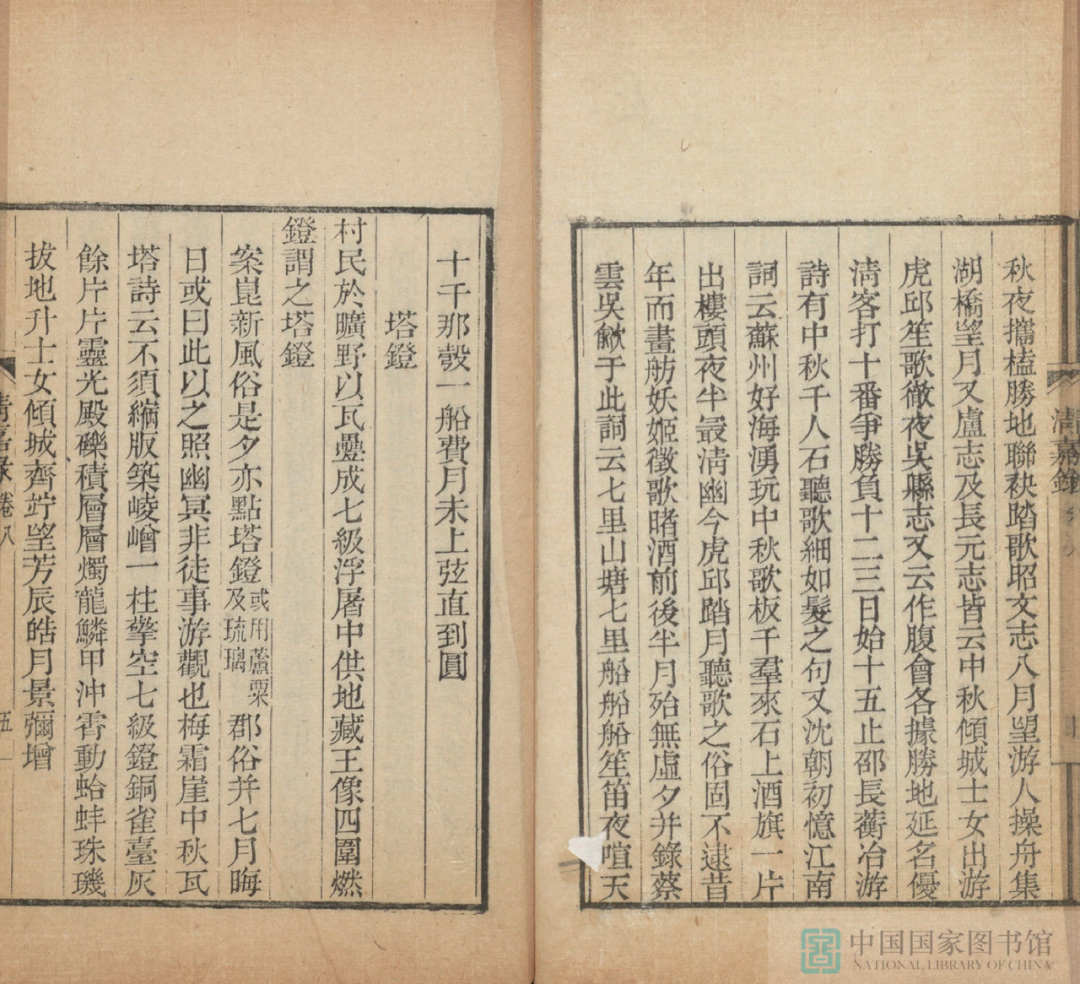 秋夜攜榼勝地聯袂踏歌昭文志八月望游人操舟集
湖橋望月又盧志及長元志皆云中秋傾城士女出游
虎邱笙歌徹夜吳縣志又云作腹會各據勝地延名優
清客打十番爭勝負十二三日始十五止邵長蘅冶游
詩有中秋千人石聽歌細如髮之句又沈朝初憶江南
詞云蘇州好海湧玩中秋歌板千羣來石上酒旗一片
出樓頭夜半最清幽今虎邱踏月聽歌之俗固不逮昔
年而畫舫妖姬徵歌賭酒前後半月殆無虛夕并錄蔡
雲吳歈于此詞云七里山塘七里船船船笙笛夜喧天
清嘉錄
十千那彀一船費月未上弦直到圓
塔鐙
村民於曠野以瓦疊成七級浮屠中供地藏王像四圍燃
鐙謂之塔鐙
案崑新風俗是夕亦點塔鐙或用蘆粟及琉璃郡俗并七月晦
日或曰此以之照幽冥非徒事游觀也梅霜崖中秋瓦
塔詩云不須縮版築崚嶒一柱擎空七級鐙銅雀臺灰
餘片片靈光殿礫積層層燭龍鱗甲沖霄動蛤蚌珠璣
拔地升士女傾城齊竚望芳辰皓月景彌增
清嘉录 卷八
五
中国国家图书馆
NATIONAL LIBRARY OF CHINA